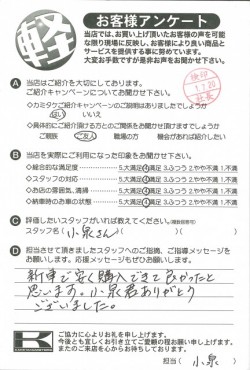 軽
お客様アンケート
当店では、お買い上げ頂いたお客様の声を可能
な限り現場に反映し、お客様により良い商品と
サービスを提供する事に努めています。
大変お手数ですが是非お声をお聞かせ下さい。
A 当店はご紹介を大切にしております。
ご紹介キャンペーンについてお聞かせ下さい
◇カミタケご紹介キャンペーンのご説明はありましたでしょうか
はい いいえ
◇具体的にご紹介頂ける方とのご関係をお聞かせ頂けますでしょうか
ご家族 ご友人 職場の方 機会があれば紹介したい
B 当店を実際にご利用になった印象をお聞かせ下さい
◇総合的な満足度 5.大満足 4.満足 3.ふつう 2.やや不満 1.不満
◇スタッフの対応 5.大満足 4.満足 3.ふつう 2.やや不満 1.不満
◇お店の雰囲気、清掃 5.大満足 4.満足 3.ふつう 2.やや不満 1.不満
◇納車時のお車の状態 5.大満足 4.満足 3.ふつう 2.やや不満 1.不満
C 評価したいスタッフがいれば教えてください。(複数回答可)
スタッフ名( 小泉さん )( )
D 担当させて頂きましたスタッフへのご指摘、ご指導メッセージを
お願いします。応援メッセージもぜひお願いします。
新車で安く購入できて良かったと
思います。小泉君ありがとう
ございました。
K
ご協力に心よりお礼を申し上げます。
今後とも宜しくお引き立てご愛顧の程お願い申し上げます。
またのご来店を心からお待ちしております。
担当( 小泉 )